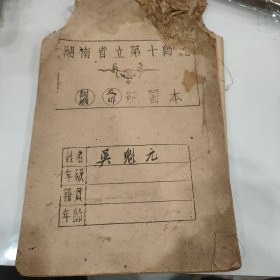 湖南省立第十師範
練習本
姓名 吳魁元
年級
籍貫
年齡